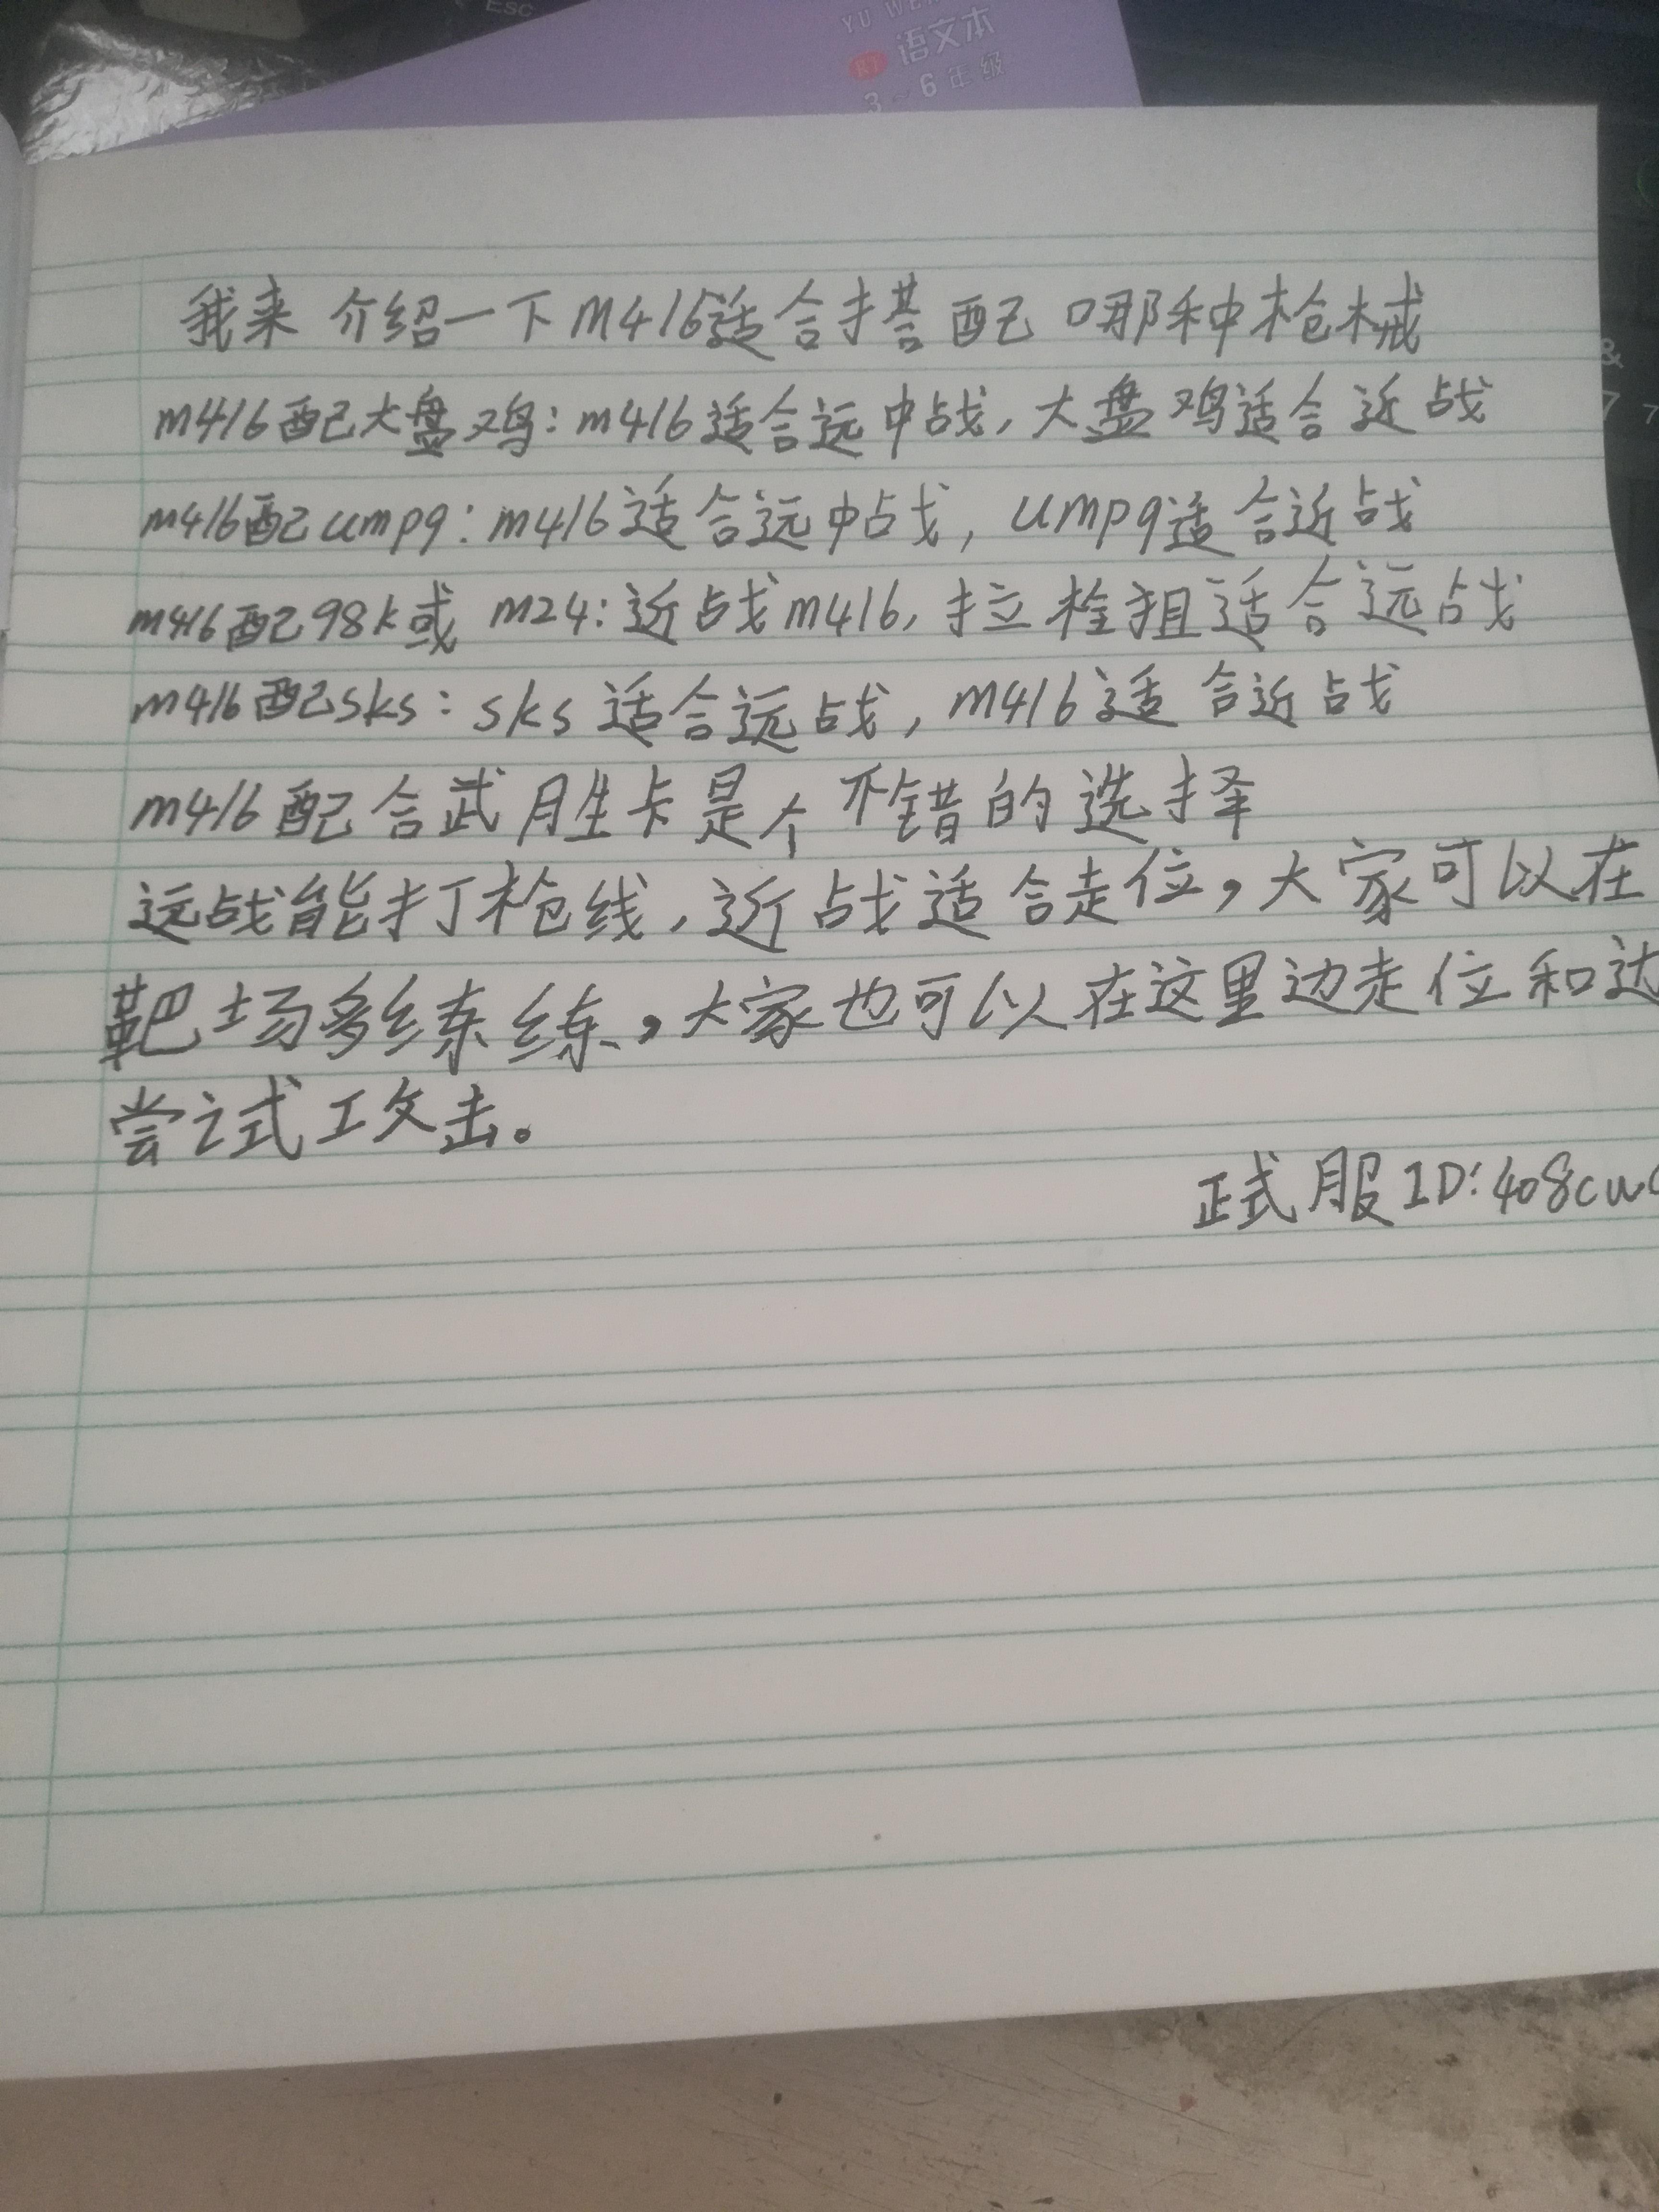 Esc
YU WEN
语文本
3~6年级
&
7
7
我来介绍一下m416适合搭配哪种枪械
m416配大盘鸡：m416适合远中战，大盘鸡适合近战
m416配ump9：m416适合远中战，ump9适合近战
m416配98k或m24：近战m416，拉栓狙适合远战
m416配sks：sks适合远战，m416适合近战
m416配合武胜卡是个不错的选择
远战能打枪线，近战适合走位，大家可以在
靶场多练练，大家也可以在这里边走位和边
尝试攻击。
正式服ID：408cw